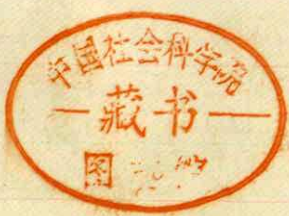 中国社会科学院
藏书
图